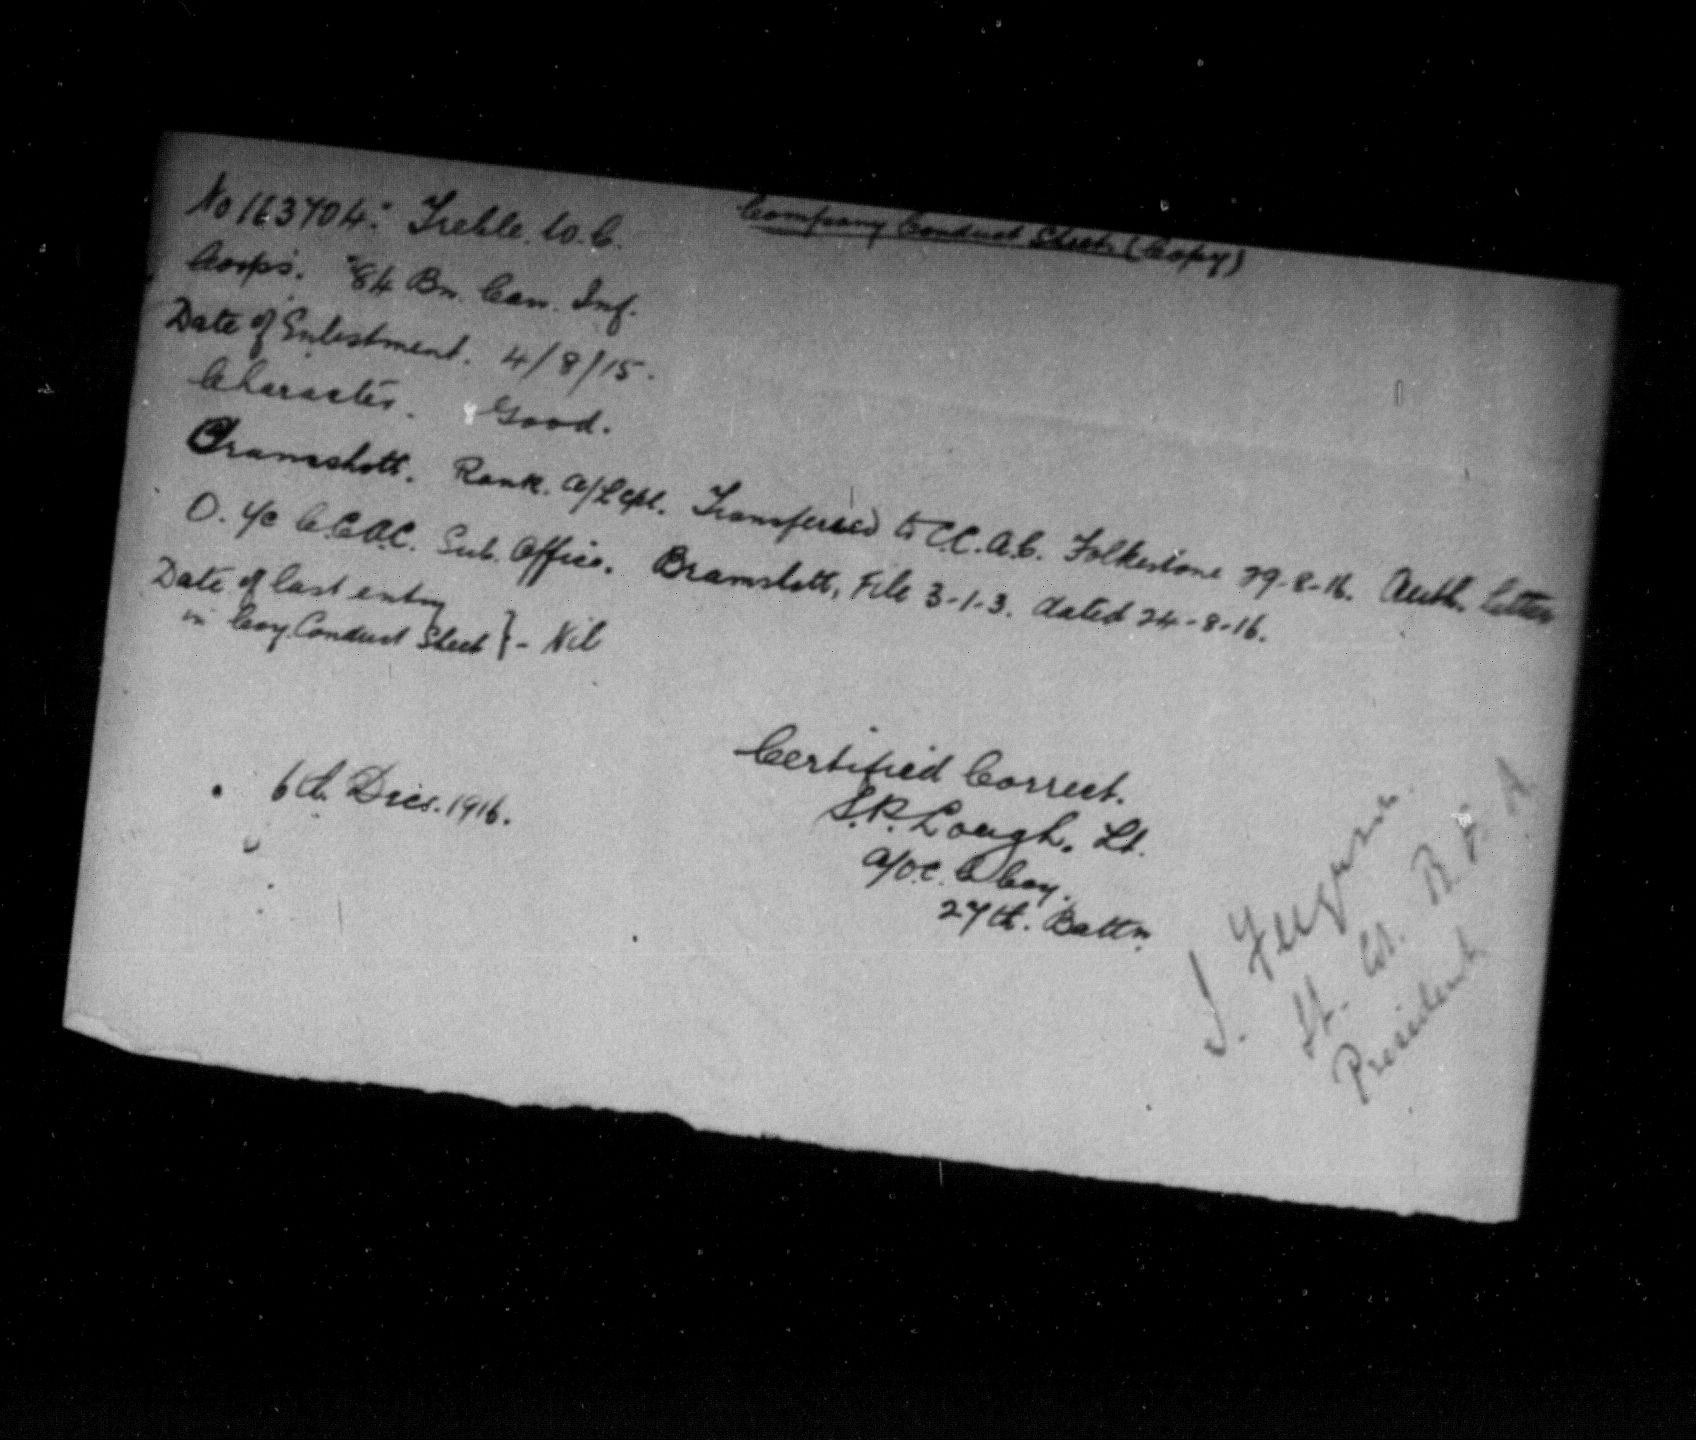 Company Conduct Sheet (Copy)
No 163704. Treble. W. C.
Corps. 84 Bn. Can. Inf.
Date of Enlistment. 4/8/15.
Character. Good.
Bramshott. Rank. A/LCpl. Transferred to C.C.A.C. Folkestone 29-8-16. Auth. Letter
O. i/c C.C.A.C. Sub. Office. Bramshott, File 3-1-3. dated 24-8-16.
Date of last entry
in Coy. Conduct Sheet } - Nil
Certified Correct.
6th. Dec. 1916.
S.R. Lough. Lt.
A/O.C. C Coy.
27th. Battn.
J. Ferguson.
Lt. Col. R. F. A
President